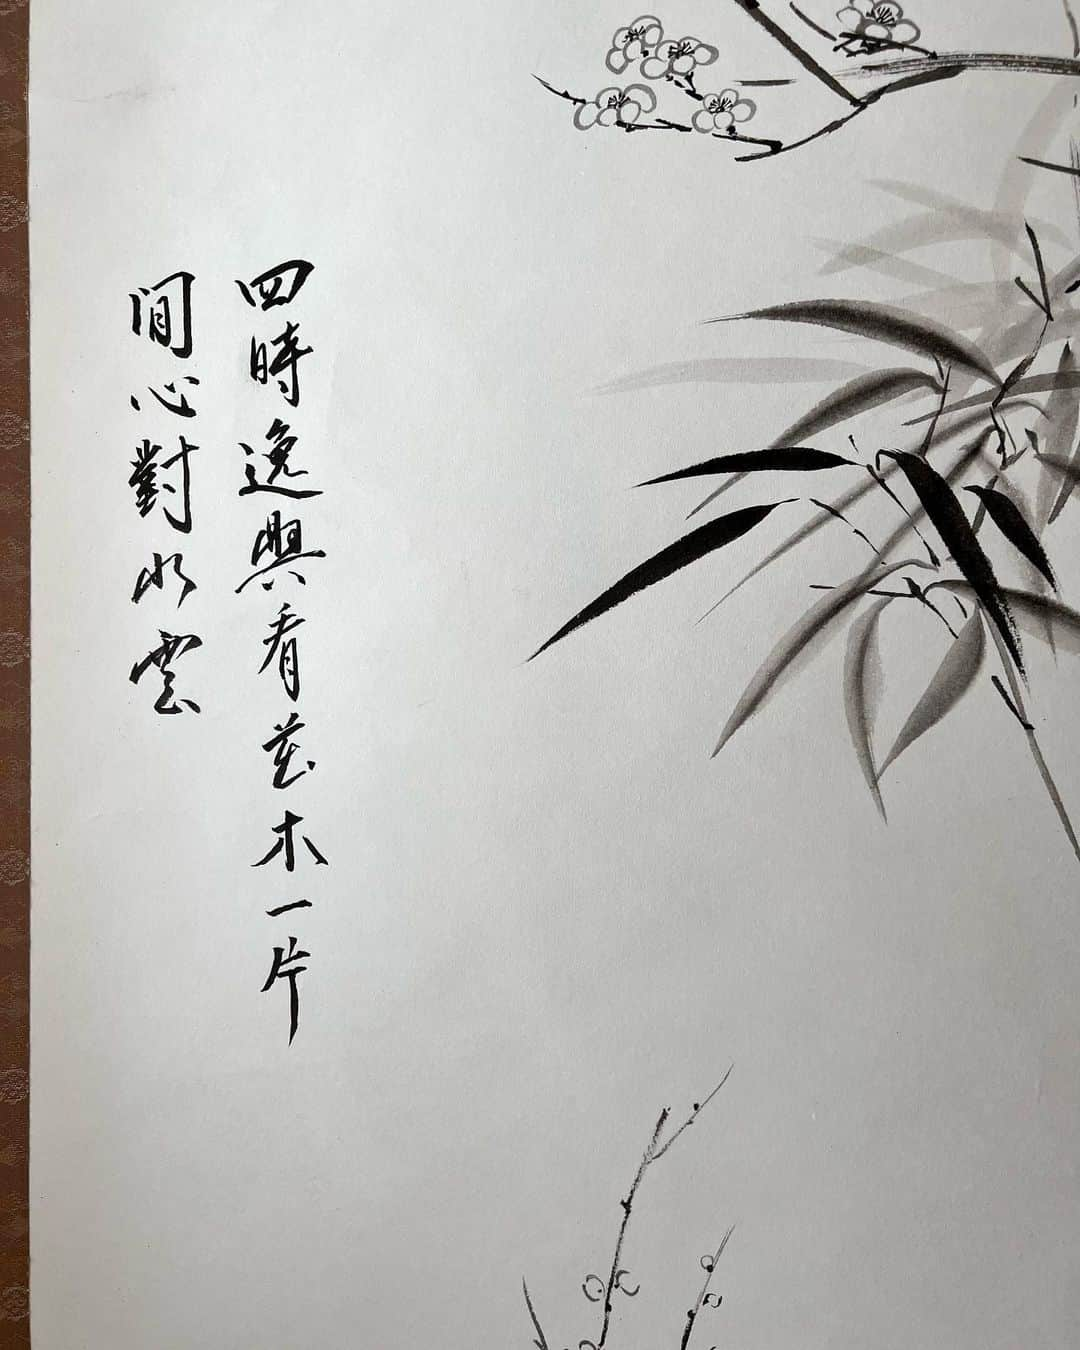 四時逸興看花木一片
閒心對水雲